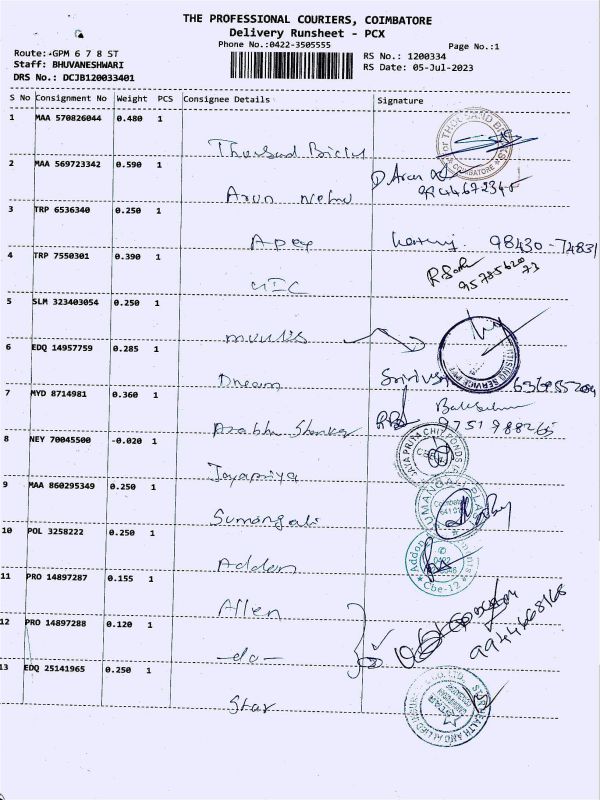 THE PROFESSIONAL COURIERS, COIMBATORE
Delivery Runsheet - PCX
Phone No.:0422-3505555
Page No.:1
Route: GPM 6 7 8 ST
RS No.: 1200334
Staff: BHUVANESHWARI
RS Date: 05-Jul-2023
DRS No.: DCJB120033401
S No Consignment No Weight PCS Consignee Details Signature
1 MAA 570826044 0.480 1
Thousand Bicles
2 MAA 569723342 0.590 1
D. Arun
Arun Nehru
3 TRP 6536340 0.250 1
Apex 98430-74831
4 TRP 7550301 0.390 1
UIC
5 SLM 323403054 0.250 1
6 EDQ 14957759 0.285 1
Dream
7 MYD 8714981 0.360 1
9751988265
8 NEY 70045500 -0.020 1
JAYAPRIYA CHIT FUNDS
Jayapriya
9 MAA 860295349 0.250 1
Sumangali
10 POL 3258222 0.250 1
Addon
Cbe-12
Addon
11 PRO 14897287 0.155 1
Allen
12 PRO 14897288 0.120 1
9944668168
-do-
13 EDQ 25141965 0.250 1
Star